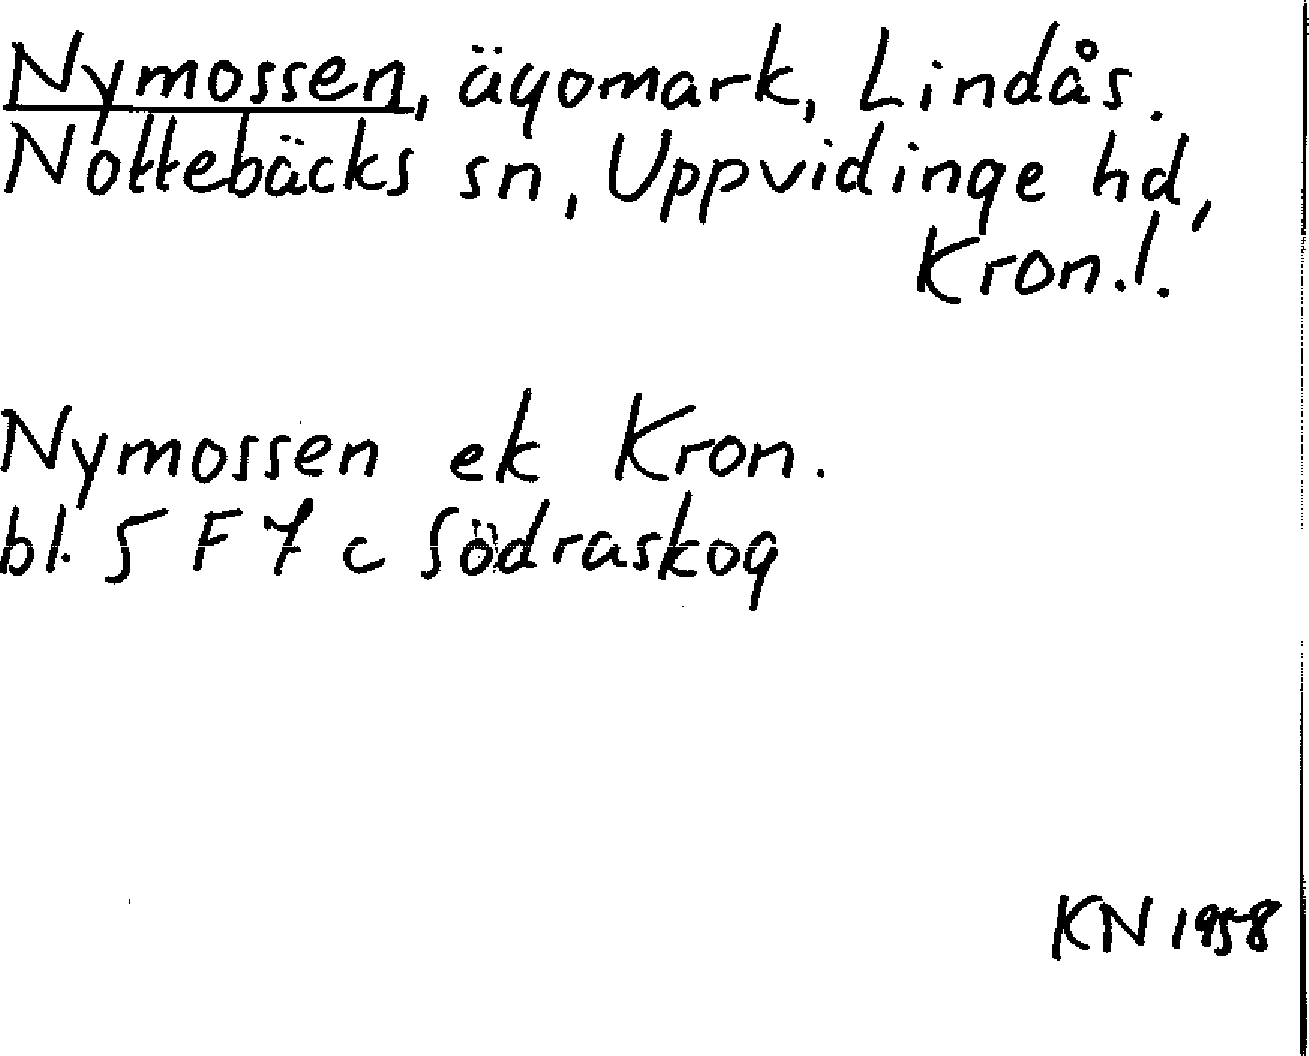 Nymossen, ägomark, Lindås.
Nottebäcks sn, Uppvidinge hd,
Kron.l.
Nymossen ek Kron.
bl. 5 F 7 c Södraskog
KN 1958